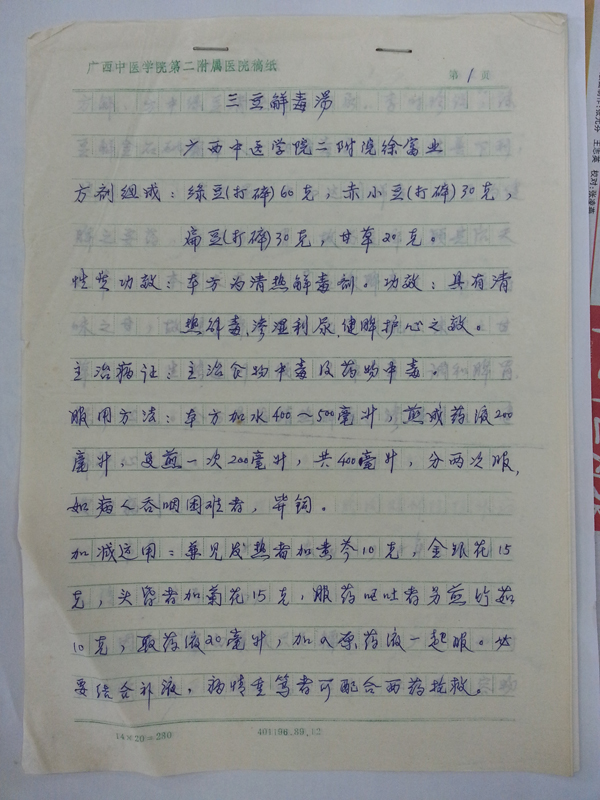 广西中医学院第二附属医院稿纸
第1页
三豆解毒汤
广西中医学院二附院徐富业
方剂组成：绿豆(打碎)60克，赤小豆(打碎)30克，
扁豆(打碎)30克，甘草20克。
性芷功效：本方为清热解毒剂。功效：具有清
热解毒、渗湿利尿、健脾护心之效。
主治病证：主治食物中毒及药物中毒。
服用方法：本方加水400～500毫升，煎成药液200
毫升，复煎一次200毫升，共400毫升，分两次服，
如病人吞咽困难者，鼻饲。
加减运用：兼见发热者加黄芩10克，金银花15
克，头昏者加菊花15克，服药呕吐者另煎竹茹
10克，取药液20毫升，加入原药液一起服。必
要结合补液，病情重笃者可配合西药抢救。
14×20=280
王志英 校对:张凌嘉